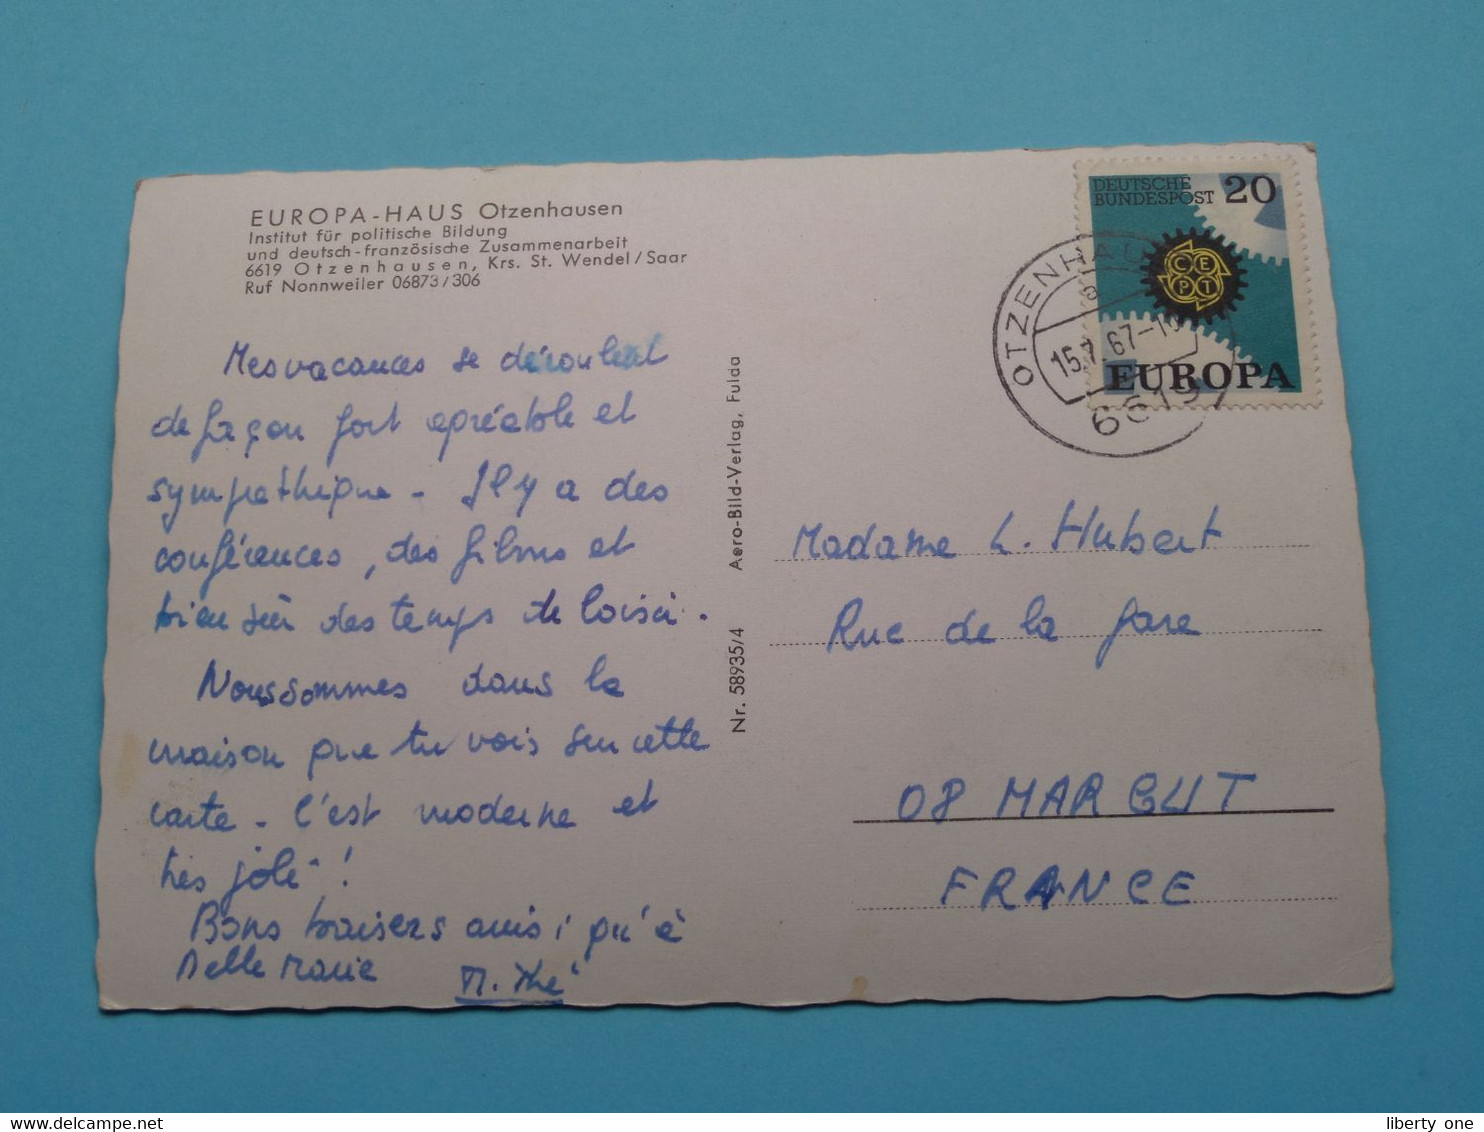 EUROPA-HAUS Otzenhausen
Institut für politische Bildung
und deutsch-französische Zusammenarbeit
6619 Otzenhausen, Krs. St. Wendel/Saar
Ruf Nonnweiler 06873/306
Mes vacances se déroulent
de façon fort agréable et
sympathique - Il y a des
conférences, des films et
bien sûr des temps de loisir.
Nous sommes dans la
maison que tu vois sur cette
carte - C'est moderne et
très joli !
Bons baisers ainsi qu'à
Melle Marie
M. Thé
Nr. 58935/4 Aero-Bild-Verlag, Fulda
DEUTSCHE
BUNDESPOST 20
CEPT
EUROPA
OTZENHAU
15.7.67-1
6619
Madame L. Hubert
Rue de la gare
08 MARGUT
FRANCE
liberty one